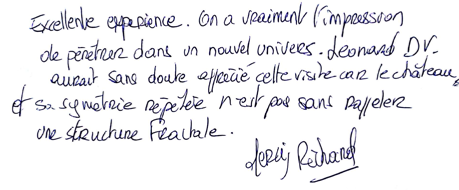 Excellente experience. On a vraiment l'impression
de pénétrer dans un nouvel univers. Leonard DV.
aurait sans doute apprécié cette visite car le château
et sa symétrie répétée n'est pas sans rappeler
une structure Fractale.
Merci Richard